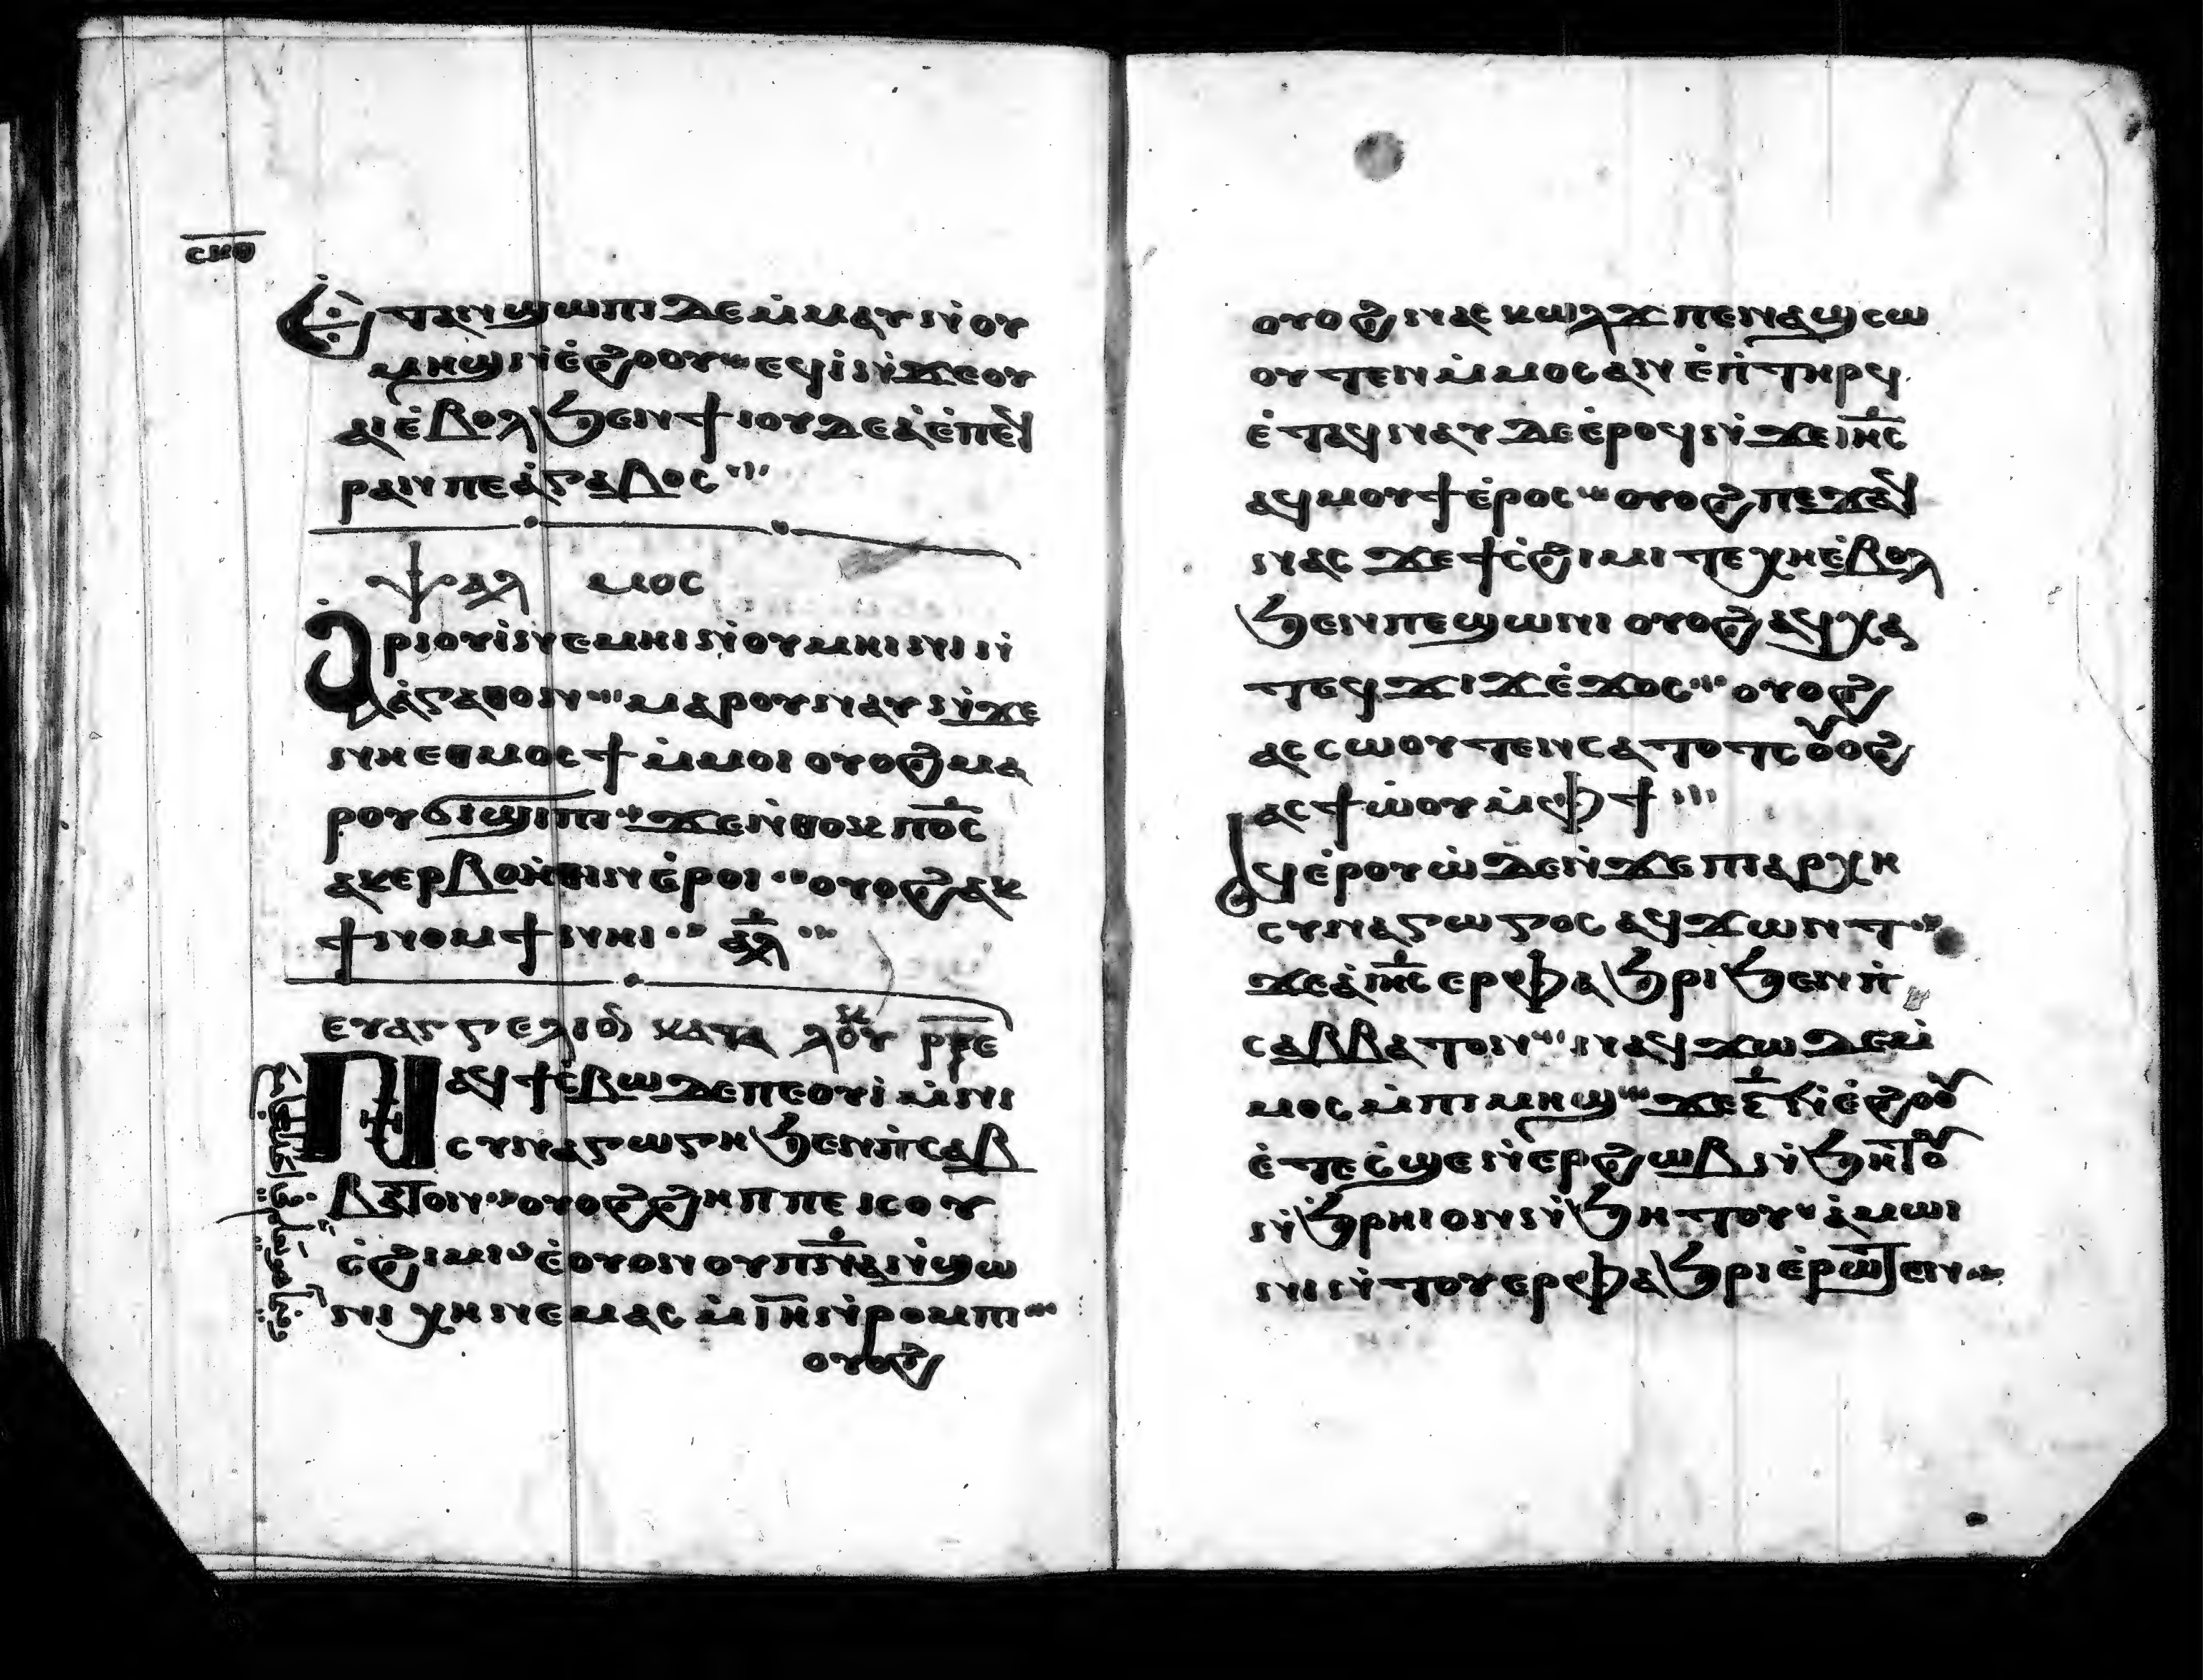 ⲥⲙⲑ
Ⲉⲧⲁⲛϣⲱⲡⲓ ⲇⲉ ⲙ̇ⲙⲁⲩ ⲛ̇ⲟⲩ
ⲙⲏϣ ⲛ̇ⲉ̇ϩⲟⲟⲩ ⲉϥⲓ̇ ⲛ̇ϫⲉ ⲟⲩ
ⲁⲓ ⲉ̇ⲃⲟⲗ ϧⲉⲛ ϯⲓⲟⲩⲇⲉⲁ̇ ⲉ̇ⲡⲉϥ
ⲣⲁⲛ ⲡⲉ ⲁ̇ⲅⲁⲃⲟⲥ
ⲯⲁⲗⲙⲟⲥ
Ⲁⲣⲓⲟⲩⲓ̇ ⲛⲉⲙⲏⲓ ⲛ̇ⲟⲩⲙⲏⲓⲛⲓ ⲛ̇
ⲁ̇ⲅⲁⲑⲟⲛ ⲙⲁⲣⲟⲩⲛⲁⲩ ⲛ̇ϫⲉ
ⲛⲏⲉⲑⲙⲟⲥϯ ⲙ̇ⲙⲟⲓ ⲟⲩⲟϩ ⲙⲁ
ⲣⲟⲩϭⲓϣⲓⲡⲓ ϫⲉ ⲛ̇ⲑⲟⲕ ⲡⲟ̅ⲥ̅
ⲁⲕⲉⲣⲃⲟⲏⲑⲓⲛ ⲉ̇ⲣⲟⲓ ⲟⲩⲟϩ ⲁⲕ
ϯⲛⲟⲙϯ ⲛⲏⲓ ⲁ̅ⲗ̅
ⲉⲩⲁⲅⲅⲉⲗⲓⲟⲛ ⲕⲁⲧⲁ ⲗⲟⲩⲕ
Ⲛⲁϥϯⲥ̇ⲃⲱ ⲇⲉ ⲡⲉ ⲟⲩⲓ̇ ⲙ̇ⲛⲓ
ⲥⲩⲛⲁⲅⲱⲅⲏ ϧⲉⲛ ⲡ̇ⲥⲁⲃ
ⲃⲁⲧⲟⲛ ⲟⲩⲟϩ ϩⲏⲡⲡⲉ ⲓⲥ ⲟⲩ
ⲥ̇ϩⲓⲙⲓ ⲉ̇ⲟⲩⲟⲛ ⲟⲩⲡ̅ⲛ̅ⲁ̅ ⲛ̇ϣⲱ
ⲛⲓ ⲭⲏ ⲛⲉⲙⲁⲥ ⲙ̇ⲓ̅ⲏ̅ ⲛ̇ⲣⲟⲙⲡⲓ
ⲟⲩⲟϩ
ⲟⲩⲟϩ ⲛⲁⲥⲕⲱⲗϫ ⲡⲉ ⲛⲁϣⲥⲱ
ⲟⲩⲧⲉⲛ ⲙ̇ⲙⲟⲥ ⲁⲛ ⲉ̇ⲡ̇ⲧⲏⲣϥ
ⲉ̇ⲧⲁϥⲛⲁⲩ ⲇⲉ ⲉ̇ⲣⲟϥ ⲛ̇ϫⲉ ⲓⲏ̅ⲥ̅
ⲁϥⲙⲟⲩϯ ⲉ̇ⲣⲟⲥ ⲟⲩⲟϩ ⲡⲉϫⲁϥ
ⲛⲁⲥ ϫⲉ ϯⲥ̇ϩⲓⲙⲓ ⲧⲉⲭⲏ ⲉ̇ⲃⲟⲗ
ϧⲉⲛ ⲡⲉϣⲱⲛⲓ ⲟⲩⲟϩ ⲁϥⲭⲁ
ⲧⲉϥϫⲓϫ ⲉ̇ϫⲟⲥ ⲟⲩⲟϩ
ⲁⲥⲥⲱⲟⲩⲧⲉⲛ ⲥⲁⲧⲟⲧⲥ ⲟⲩⲟϩ
ⲁⲥϯⲱ̇ⲟⲩ ⲙ̇ⲫϯ
Ⲁϥⲉ̇ⲣⲟⲩⲱ̇ ⲇⲉ ⲛ̇ϫⲉ ⲡⲓⲁⲣⲭⲏ
ⲥⲩⲛⲁⲅⲱⲅⲟⲥ ⲁϥϫⲱⲛⲧ
ϫⲉ ⲁ̇ ⲓⲏ̅ⲥ̅ ⲉⲣⲫⲁϧⲣⲓ ϧⲉⲛ ⲡ̇
ⲥⲁⲃⲃⲁⲧⲟⲛ ⲛⲁϥϫⲱ ⲇⲉ ⲙ̇
ⲙⲟⲥ ⲙ̇ⲡⲓⲙⲏϣ ϫⲉ ⲋ̅ ⲛ̇ⲉ̇ϩⲟⲟⲩ
ⲉ̇ⲧⲉⲥ̇ϣⲉ ⲛ̇ⲉⲣϩⲱⲃ ⲛ̇ϧⲏⲧⲟⲩ
ⲛ̇ϧⲣⲏⲓ ⲟⲛ ⲛ̇ϧⲏⲧⲟⲩ ⲁ̇ⲙⲱⲓ
ⲛⲓ ⲛ̇ⲧⲟⲩⲉⲣⲫⲁϧⲣⲓ ⲉ̇ⲣⲱⲧⲉⲛ